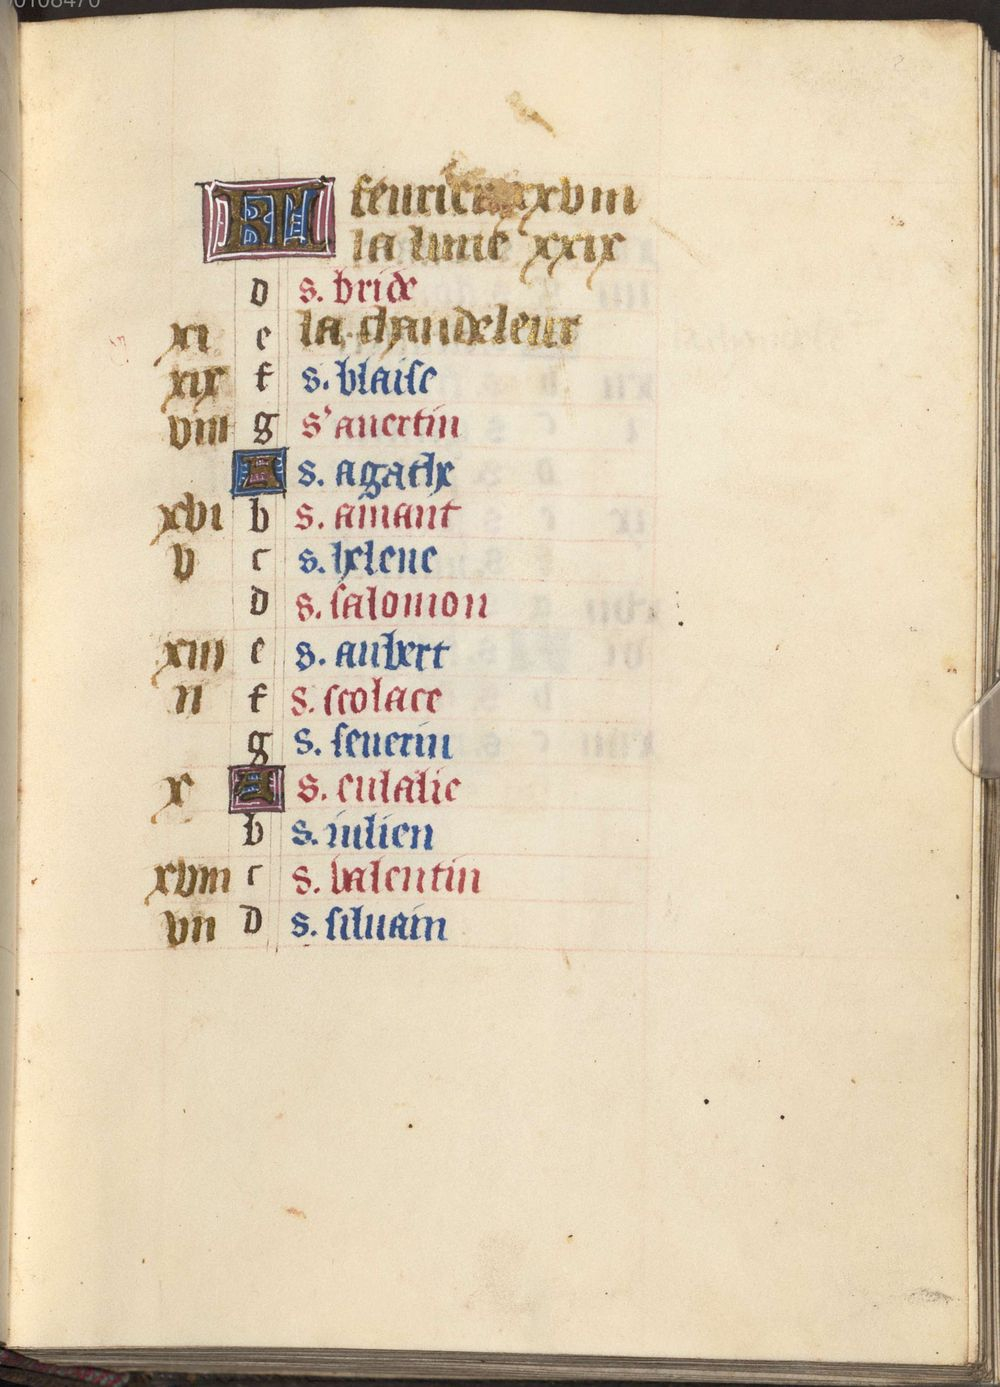 KL feurier xxviii
la lune xxix
d s. bride
xi e la chandeleur
xix f s. blaise
viii g s' auertin
A s. agathe
xvi b s. amant
v c s. helene
d s. salomon
xiii e s. aubert
ii f s. scolace
g s. seuerin
x A s. eulalie
b s. iulien
xviii c s. valentin
vii d s. siluain